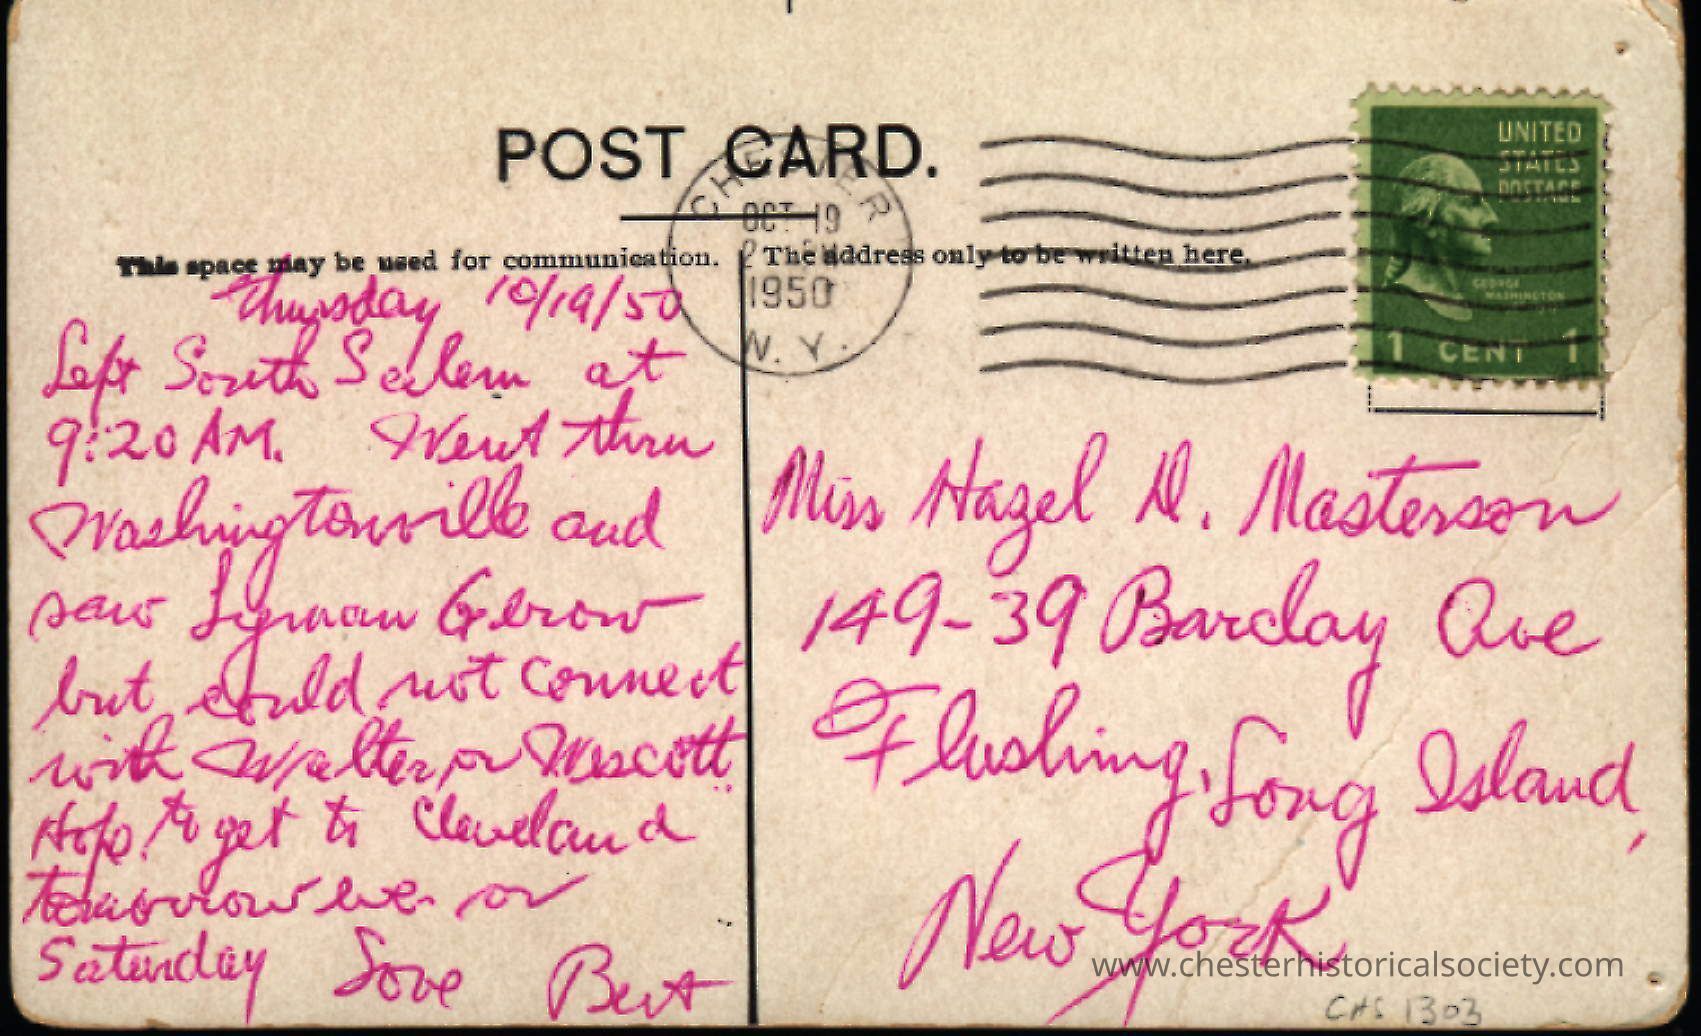 POST CARD.
CHESTER
OCT 19
1950
N. Y.
UNITED
STATES
POSTAGE
GEORGE
WASHINGTON
1 CENT 1
This space may be used for communication.
The address only to be written here.
Thursday 10/19/50
Left South Salem at
9:20 AM. Went thru
Washingtonville and
saw Lyman Gerow
but could not connect
with Walter or Wescott.
Hope to get to Cleveland
tomorrow eve or
Saturday Love Bert
Miss Hazel D. Masterson
149-39 Barclay Ave
Flushing, Long Island,
New York
www.chesterhistoricalsociety.com
CHS 1303